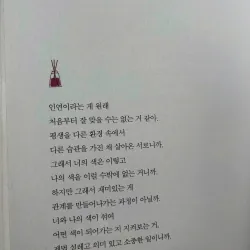 인연이라는 게 원래
처음부터 잘 맞을 수는 없는 거 같아.
평생을 다른 환경 속에서
다른 습관을 가진 채 살아온 서로니까.
그래서 너의 색은 이렇고
나의 색을 이럴 수밖에 없는 거니까.
하지만 그래서 재미있는 게
관계를 만들어나가는 과정이 아닐까.
너와 나의 색이 섞여
어떤 색이 되어가는 지 지켜보는 거.
제법 설레고 의미 있고 소중한 일이니까.